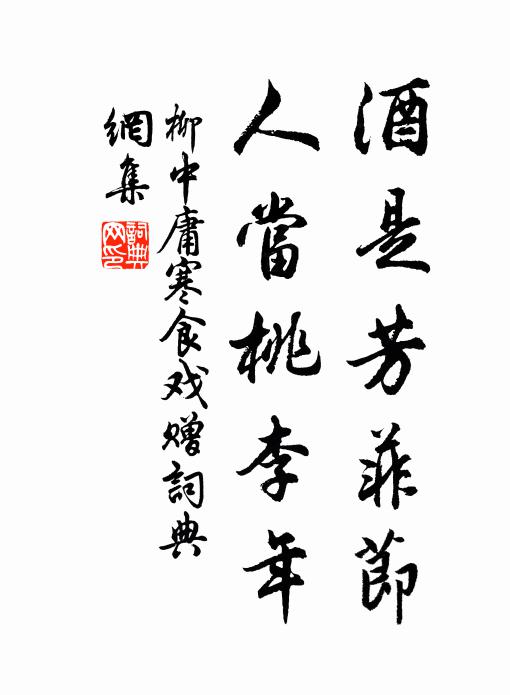 酒是芳菲節
人當桃李年
柳中庸寒食戏赠詞典
網集
詞典
网印